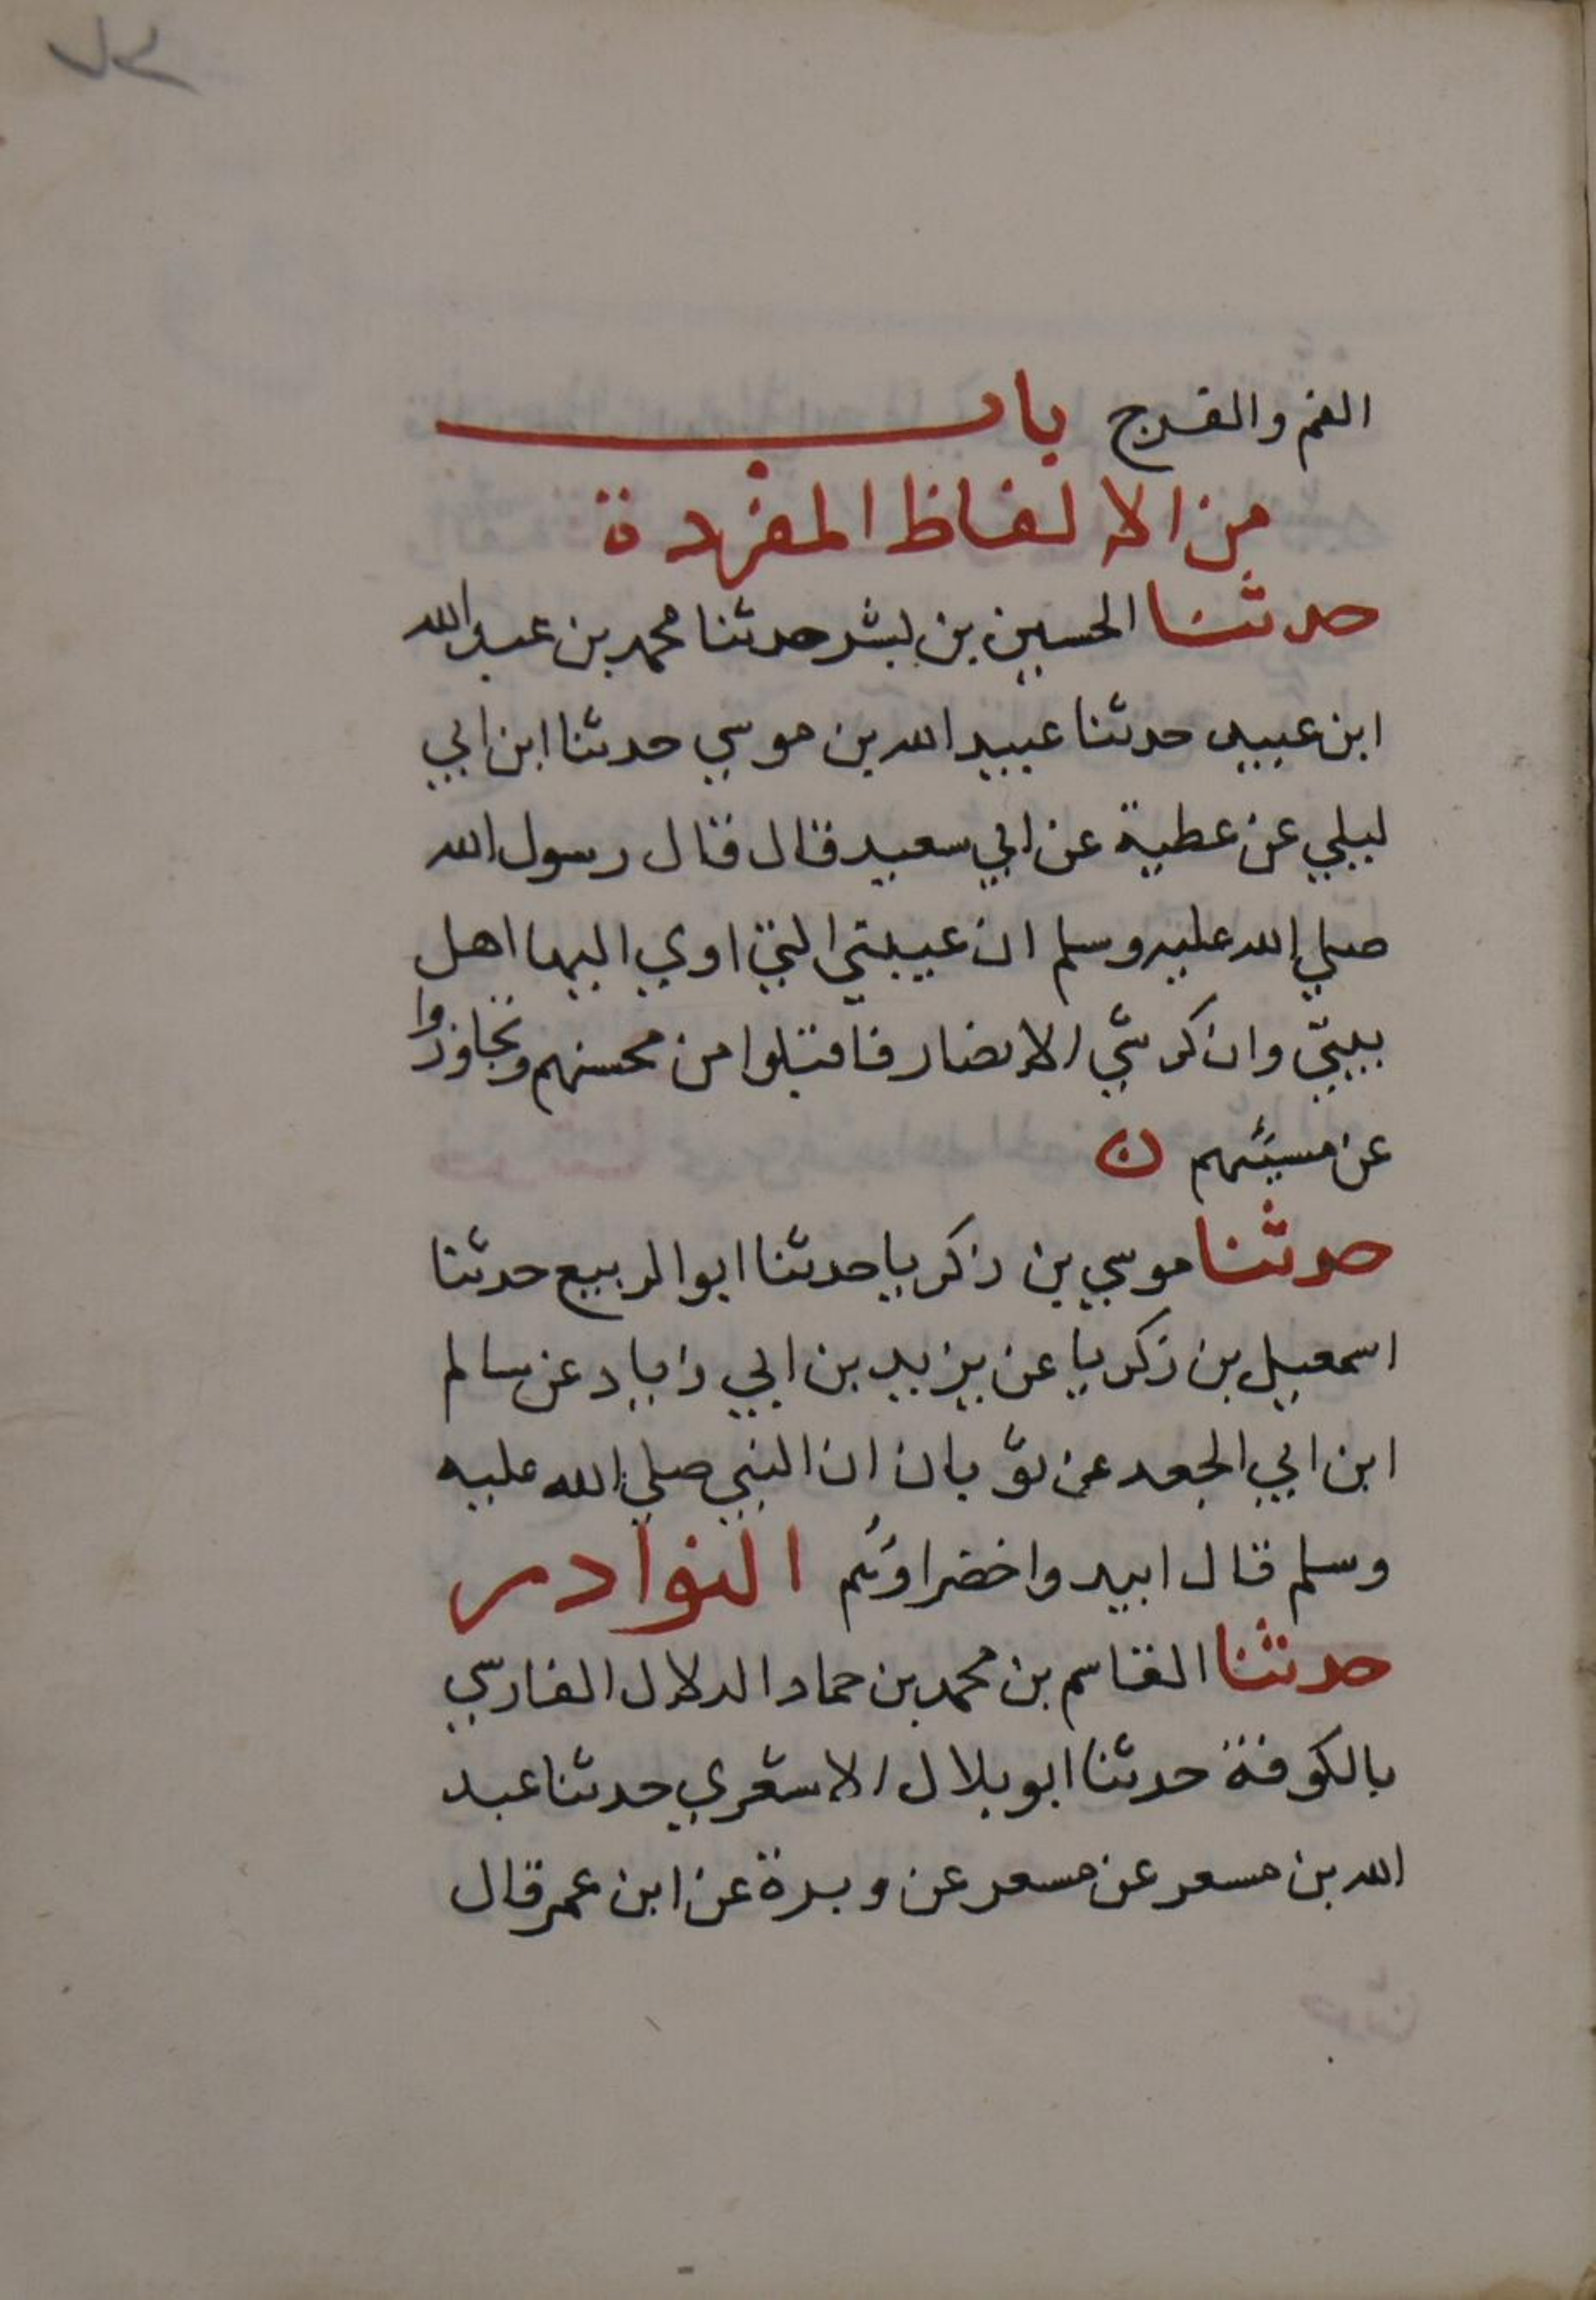 الفم والفرج باب
من الالفاظ المفردة
حدثنا الحسين بن بشر حدثنا محمد بن عبد الله
ابن عبيد حدثنا عبيد الله بن موسي حدثنا ابن ابي
ليلي عن عطية عن ابي سعيد قال قال رسول الله
صلي الله عليه وسلم ان عيبتي التي اوي اليها اهل
بيتي وان كرشي الانصار فاقبلوا من محسنهم وتجاوزوا
عن مسيئهم ن
حدثنا موسي بن زكريا حدثنا ابو الربيع حدثنا
اسمعيل بن زكريا عن يزيد بن ابي زياد عن سالم
ابن ابي الجعد عن ثوبان ان النبي صلي الله عليه
وسلم قال ابيدوا خضراؤهم النوادر
حدثنا القاسم بن محمد بن حماد الدلال الفارسي
بالكوفة حدثنا ابو بلال الاشعري حدثنا عبد
الله بن مسعر عن مسعر عن وبرة عن ابن عمر قال